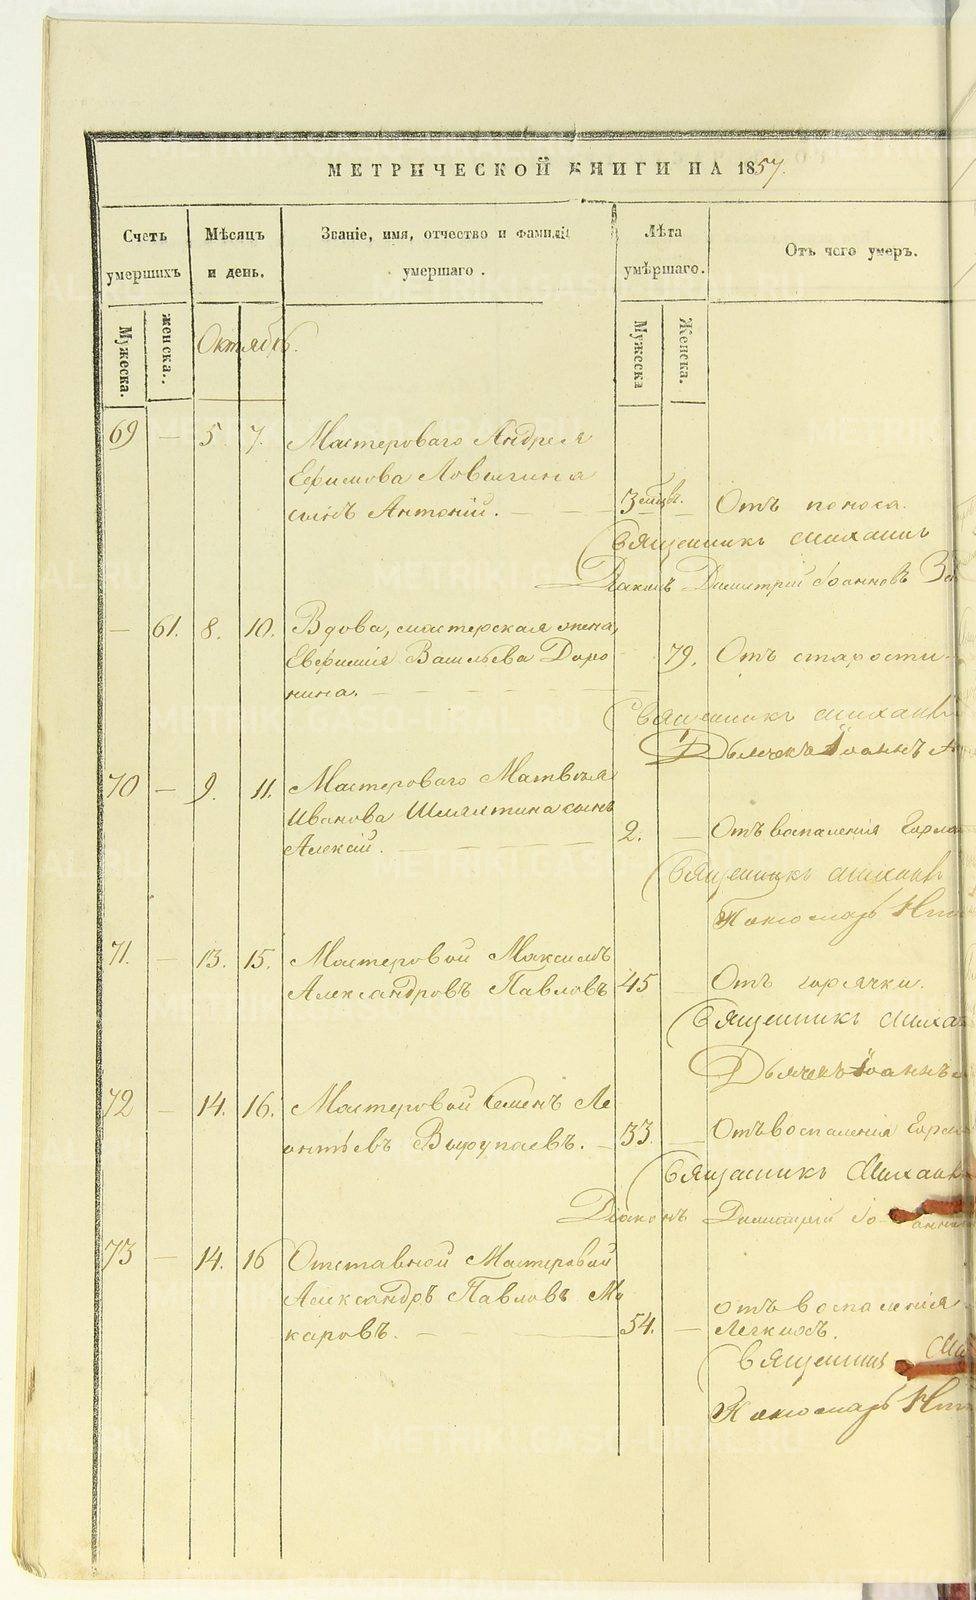 МЕТРИЧЕСКОЙ КНИГИ НА 1857.
Счетъ умершихъ
Мѣсяцъ и день.
Званіе, имя, отчество и фамилія умершаго.
Лѣта умѣршаго.
Отъ чего умеръ.
Мужеска.
женска.
Октябрь.
Мужеска
Женска.
69 — 5. 7. Мастероваго Андрея
Ефимова Ловыгина
сынъ Антоній. — 3 — Отъ поноса.
Священникъ Михаилъ
Діаконъ Димитрій Іоанновъ
— 61. 8. 10. Вдова, мастерская жена,
Евфимія Васильева Доро
нина. — 79. Отъ старости
Священникъ Михаилъ
Дьячекъ Іоаннъ
70 — 9. 11. Мастероваго Матвѣя
Иванова сынъ
Алексій. — 2. — Отъ воспаленія
Священникъ Михаилъ
Пономарь
71. — 13. 15. Мастеровой Максимъ
Александровъ Павловъ 45 — Отъ горячки.
Священникъ
Дьячекъ Іоаннъ
72 — 14. 16. Мастеровой Семенъ Ле
онтьевъ Выгупаевъ. — 33. — Отъ воспаленія
Священникъ Михаилъ
Діаконъ Димитрій
73 — 14. 16 Отставной Мастеровой
Александръ Павловъ Ма
каровъ. — 54. — отъ воспаленія
Легкихъ.
Священникъ
Пономарь